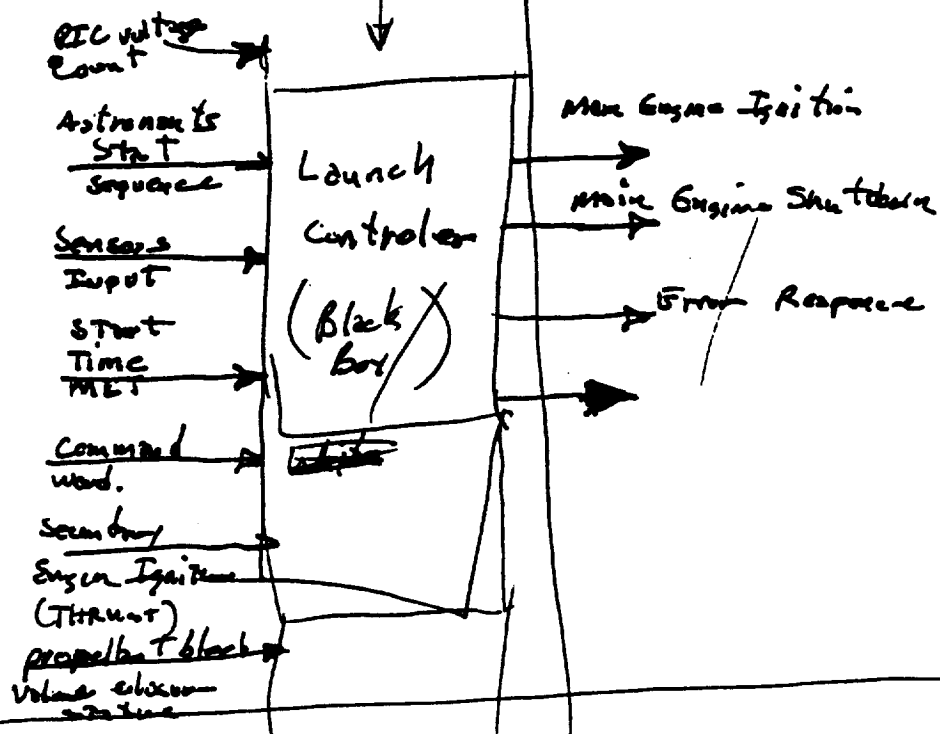 PIC voltage
Count
Astronauts
Start
Sequence
Sensors
Input
Start
Time
MET
Command
Word.
Engine Ignition
(THRUST)
propellant block
Volume
Launch
Controler
(Black
Box)
Main Engine Ignition
Main Engine Shutdown
Error Response